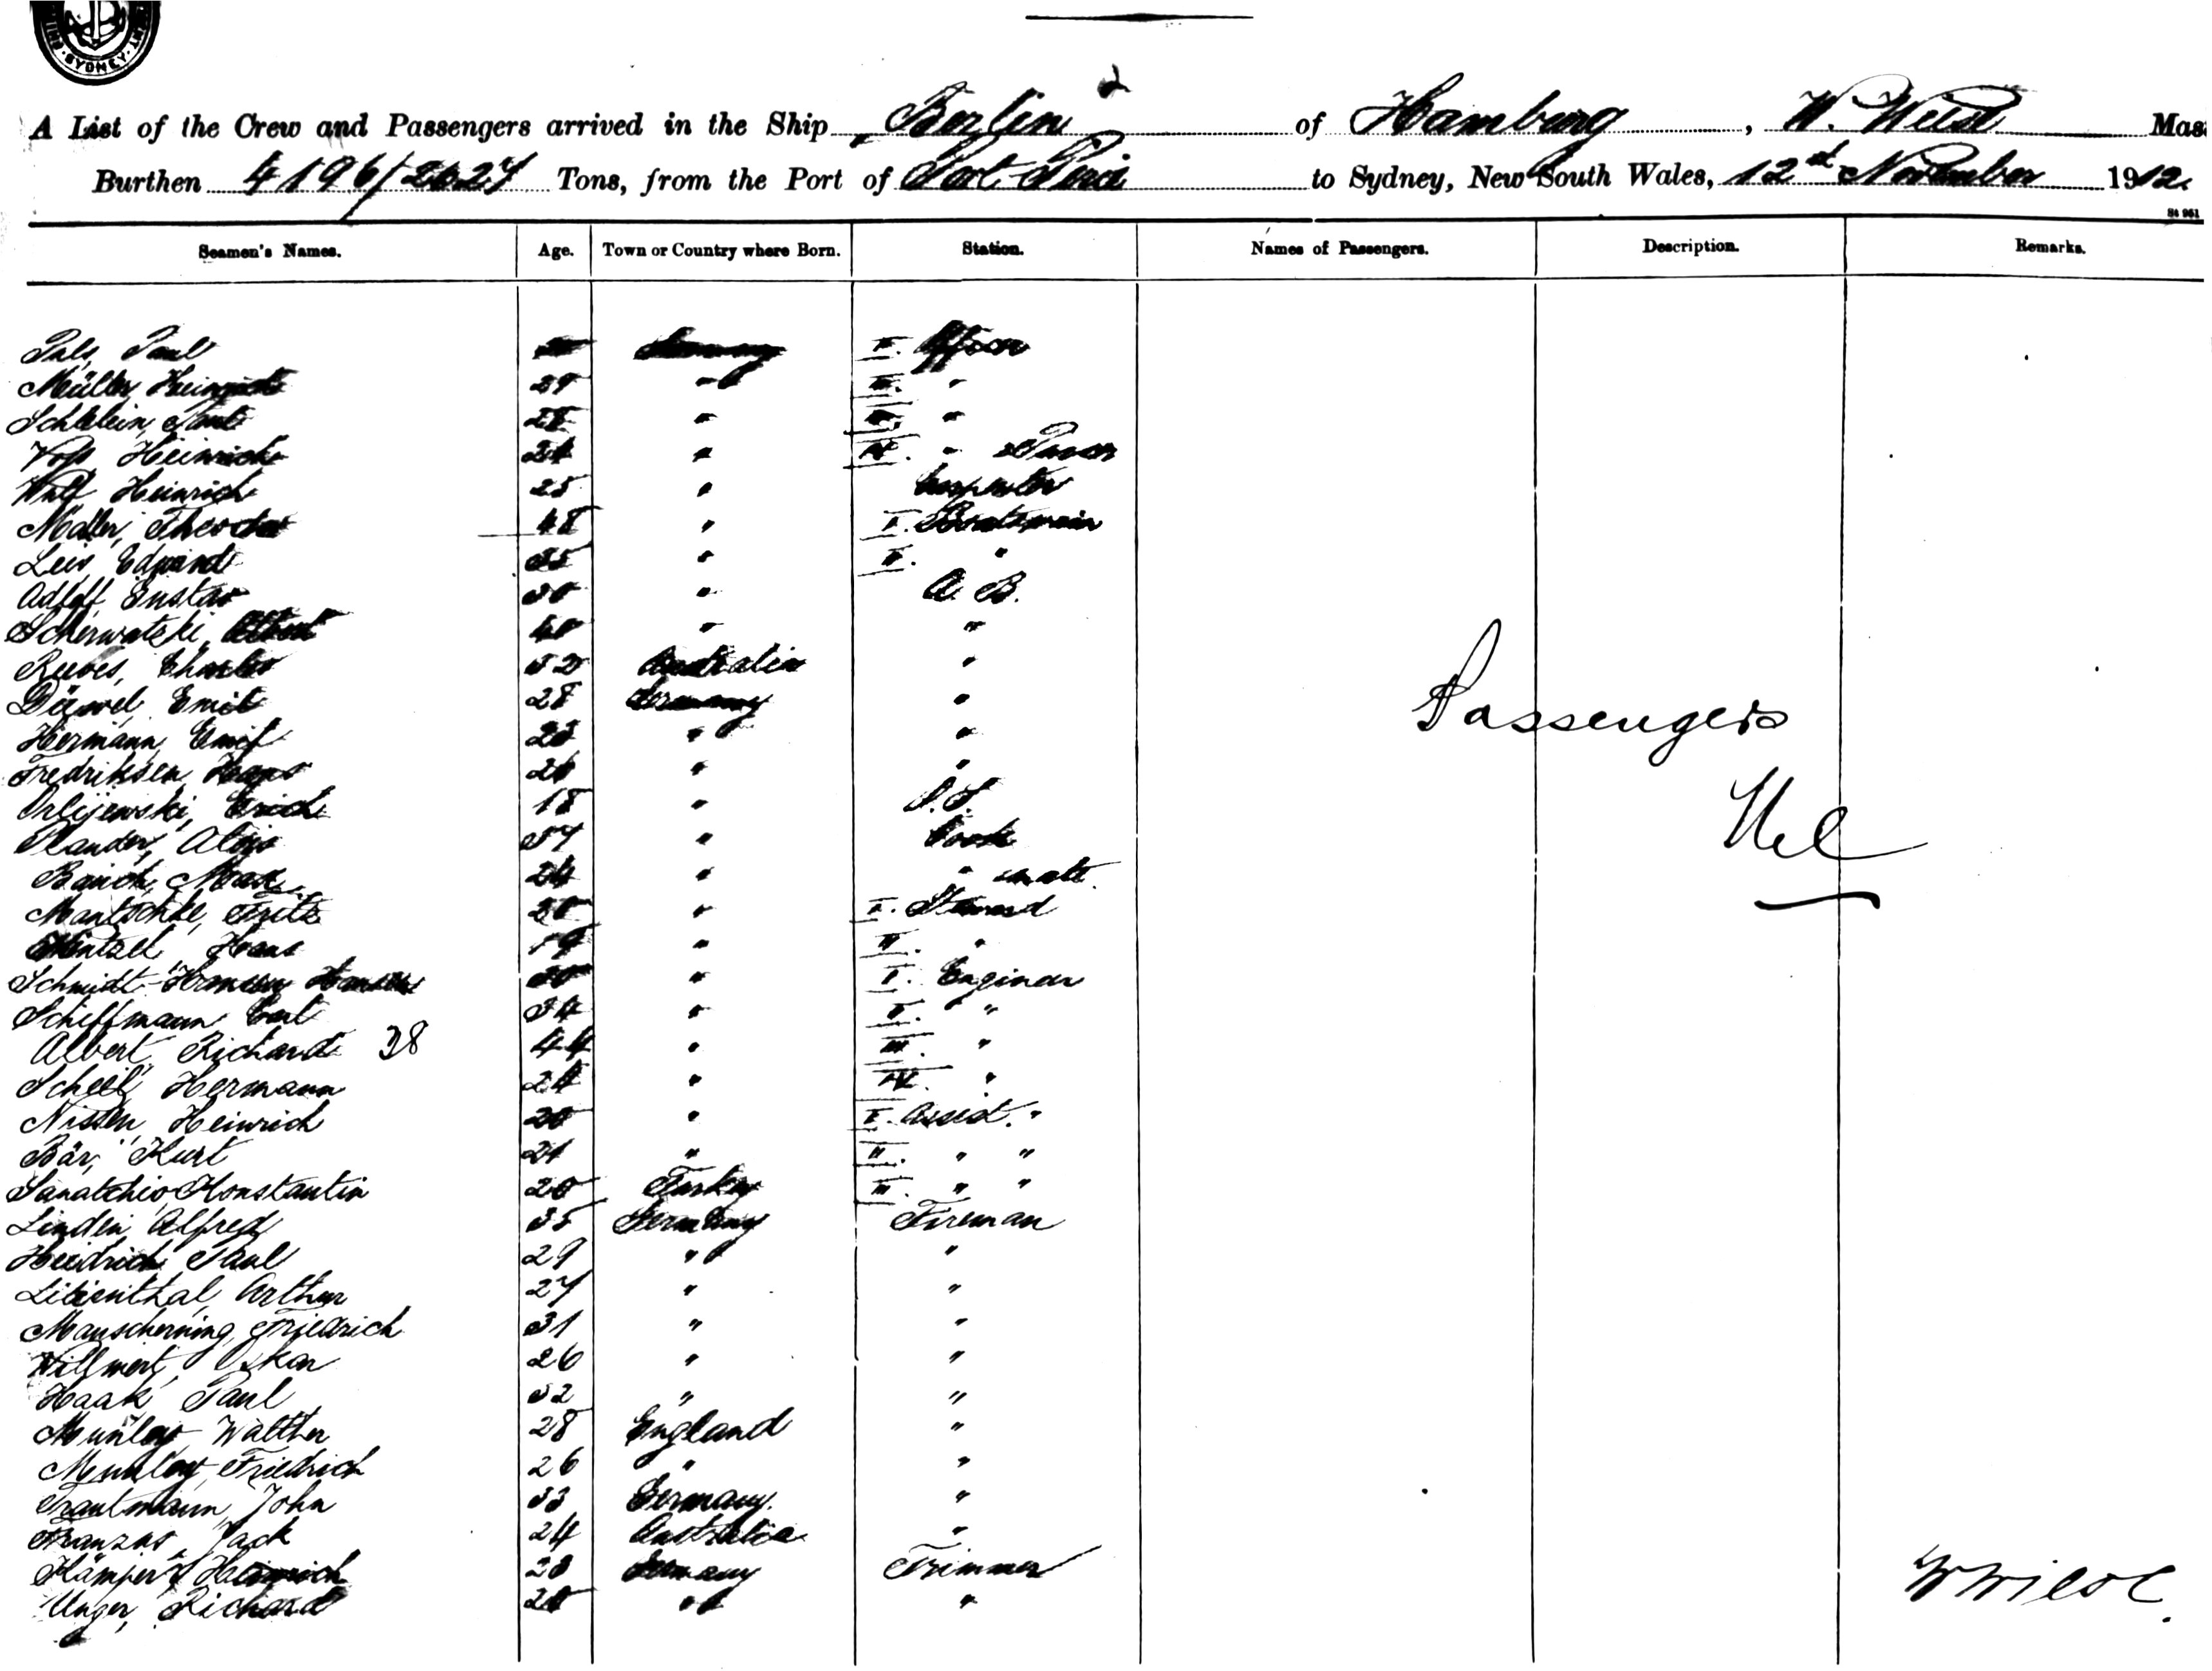 SYDNEY
A List of the Crew and Passengers arrived in the Ship Berlin of Hamburg, W. Mas
Burthen 4196/2627 Tons, from the Port of Port Pirie to Sydney, New South Wales, 12 November 1912.
St 961
Seamen's Names. Age. Town or Country where Born. Station. Names of Passengers. Description. Remarks.
Paul Germany II. Officer
Müller, Heinrich 27 " III. "
Paul 28 " "
Voss Heinrich 24 " IV. "
Wulf Heinrich 25 " Carpenter
Theodor 48 " I. Boatsmain
Leis Eduard 35 " II. "
Adloff, Gustav 30 " A. B.
Scherwatski, Albert 40 " "
Reeves, Charles 32 Australia "
Düwel Emil 28 Germany "
Hermann, Emil 23 " "
Fredriksen, Hans 26 " "
Erich 18 " O.S.
Plander, Alois 37 " Cook
Max 24 " " matt.
Mantschke, Fritz 20 " I. Steward
Hans 19 " II. "
Schmidt-Hansen 30 " I. Engineer
Schiffmann Carl 34 " II. "
Albert, Richard 38 44 " III. "
Scheel, Hermann 24 " IV. "
Nissen, Heinrich 20 " I. Assist. "
Bär, Kurt 21 " II. " "
Konstantin 20 Turkey III. " "
Linden, Alfred 35 Germany Fireman
Heidrich, Paul 29 " "
Lilienthal, Arthur 27 " "
Manscherning, Friedrich 31 " "
Willmert, Oskar 26 " "
Haak, Paul 32 " "
Munley, Walther 28 England "
Munley, Friedrich 26 " "
Trautmann, John 33 Germany. "
Franzus, Jack 24 Australia "
Kämpert, Heinrich 23 Germany Trimmer
Unger, Richard 20 " "
Passengers
Nil